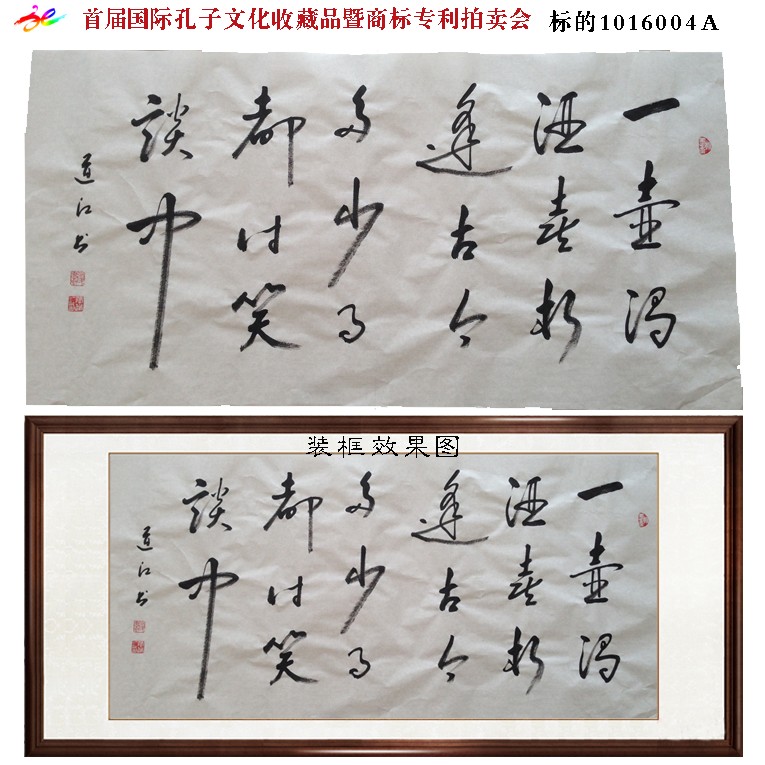 首届国际孔子文化收藏品暨商标专利拍卖会 标的1016004A
一壺濁
酒喜相
逢古今
多少事
都付笑
談中
道江书
装框效果图
一壺濁
酒喜相
逢古今
多少事
都付笑
談中
道江书